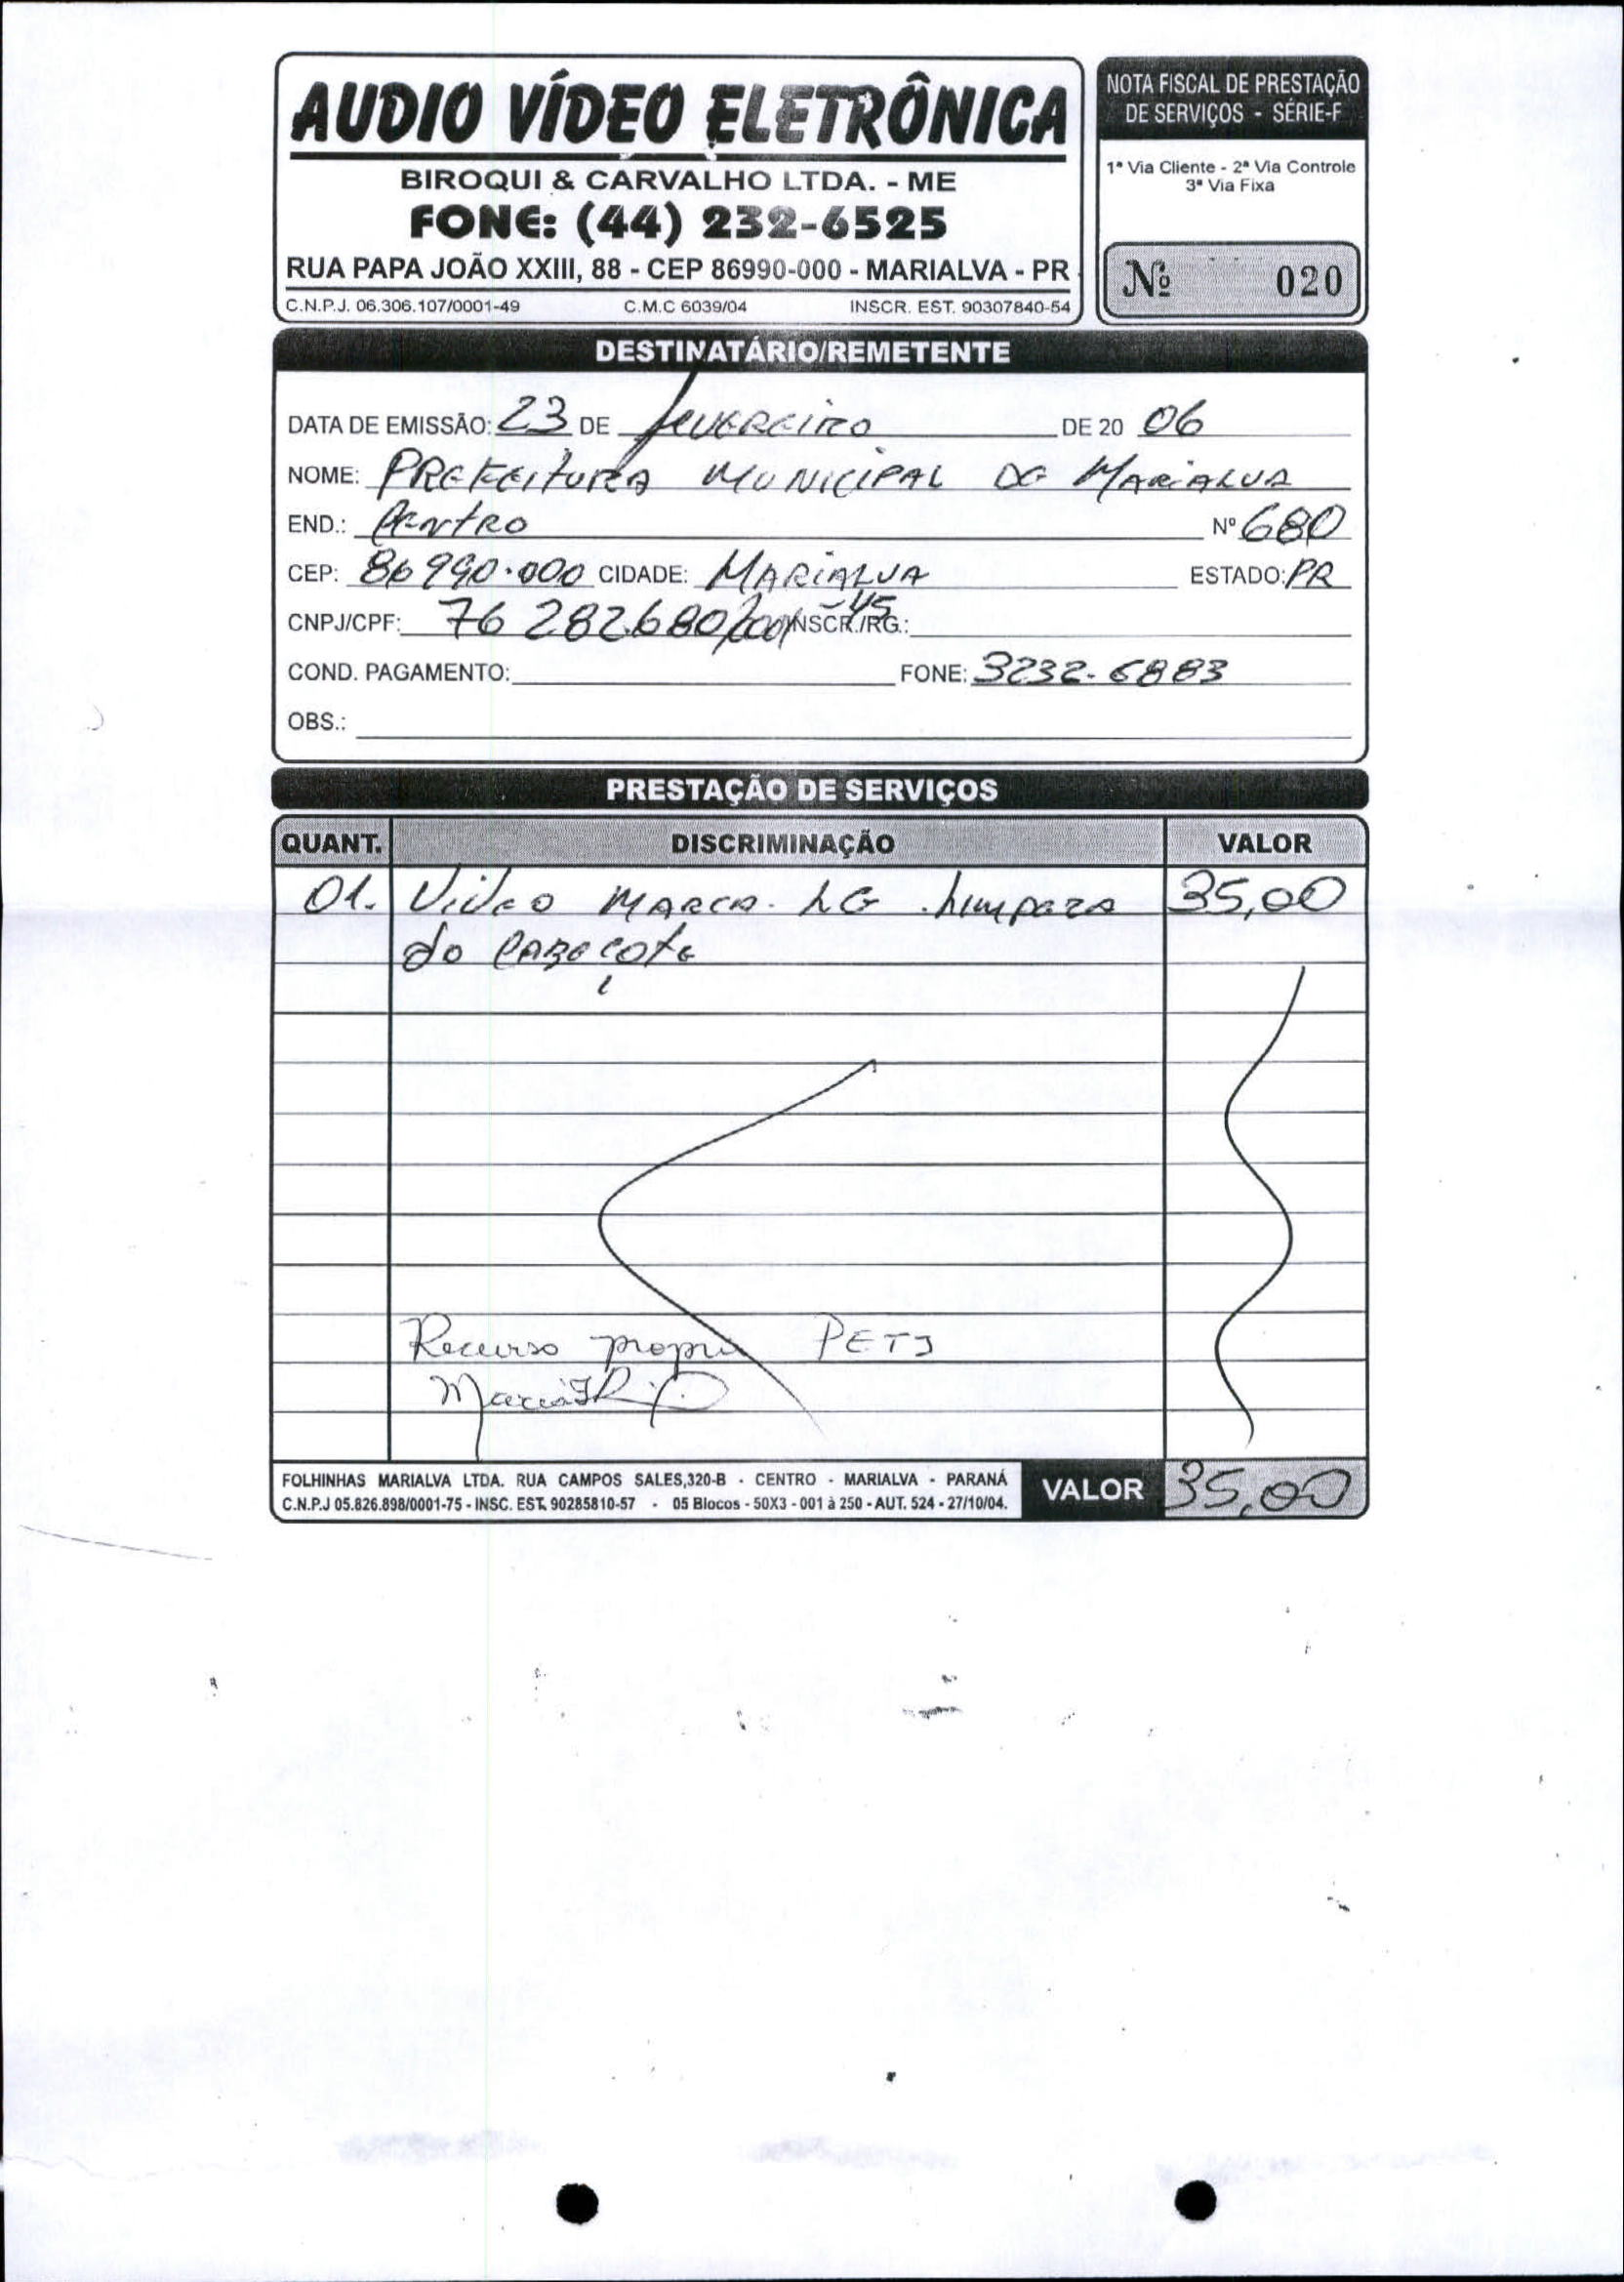 AUDIO VÍDEO ELETRÔNICA
BIROQUI & CARVALHO LTDA. - ME
FONE: (44) 232-6525
RUA PAPA JOÃO XXIII, 88 - CEP 86990-000 - MARIALVA - PR
C.N.P.J. 06.306.107/0001-49 C.M.C 6039/04 INSCR. EST. 90307840-54
NOTA FISCAL DE PRESTAÇÃO
DE SERVIÇOS - SÉRIE-F
1ª Via Cliente - 2ª Via Controle
3ª Via Fixa
Nº 020
DESTINATÁRIO/REMETENTE
DATA DE EMISSÃO: 23 DE fevereiro DE 20 06
NOME: PREFEITURA MUNICIPAL DE MARIALVA
END.: Centro Nº 680
CEP: 86990.000 CIDADE: MARIALVA ESTADO: PR
CNPJ/CPF: 76 282.680/0001-45 INSCR./RG.:
COND. PAGAMENTO: FONE: 3232-6883
OBS.:
PRESTAÇÃO DE SERVIÇOS
QUANT. DISCRIMINAÇÃO VALOR
01. Video MARCA. LG. Limpeza 35,00
do CABEÇOTE
Recurso PETI
VALOR 35,00
FOLHINHAS MARIALVA LTDA. RUA CAMPOS SALES,320-B - CENTRO - MARIALVA - PARANÁ
C.N.P.J 05.826.898/0001-75 - INSC. EST. 90285810-57 - 05 Blocos - 50X3 - 001 à 250 - AUT. 524 - 27/10/04.